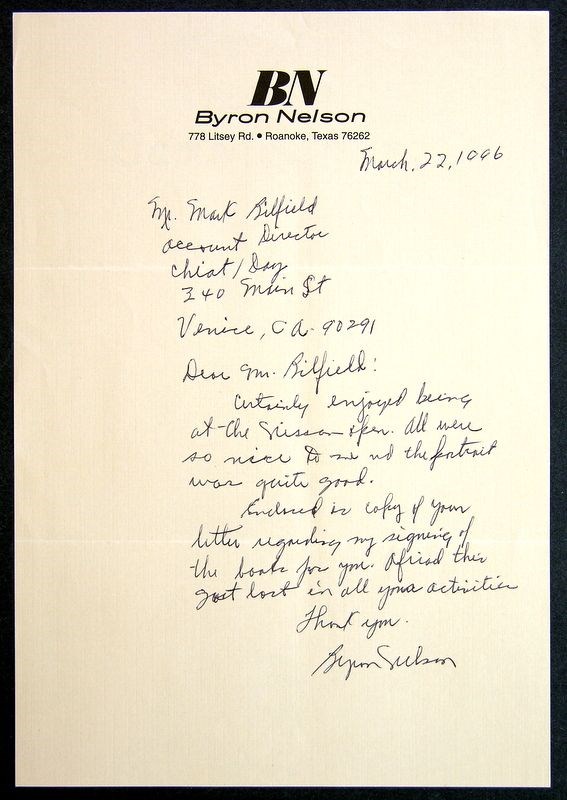 BN
Byron Nelson
778 Litsey Rd. • Roanoke, Texas 76262
March, 22, 1996
Mr. Mark Bilfield
account Director
Chiat/Day
340 Main St
Venice, CA. 90291
Dear Mr. Bilfield:
Certainly enjoyed being
at the Nissan Open. All were
so nice to me nd the portrait
was quite good.
Enclosed is copy of your
letter regarding my signing of
the books for you. Afriad this
got lost in all your activities
Thank you.
Byron Nelson